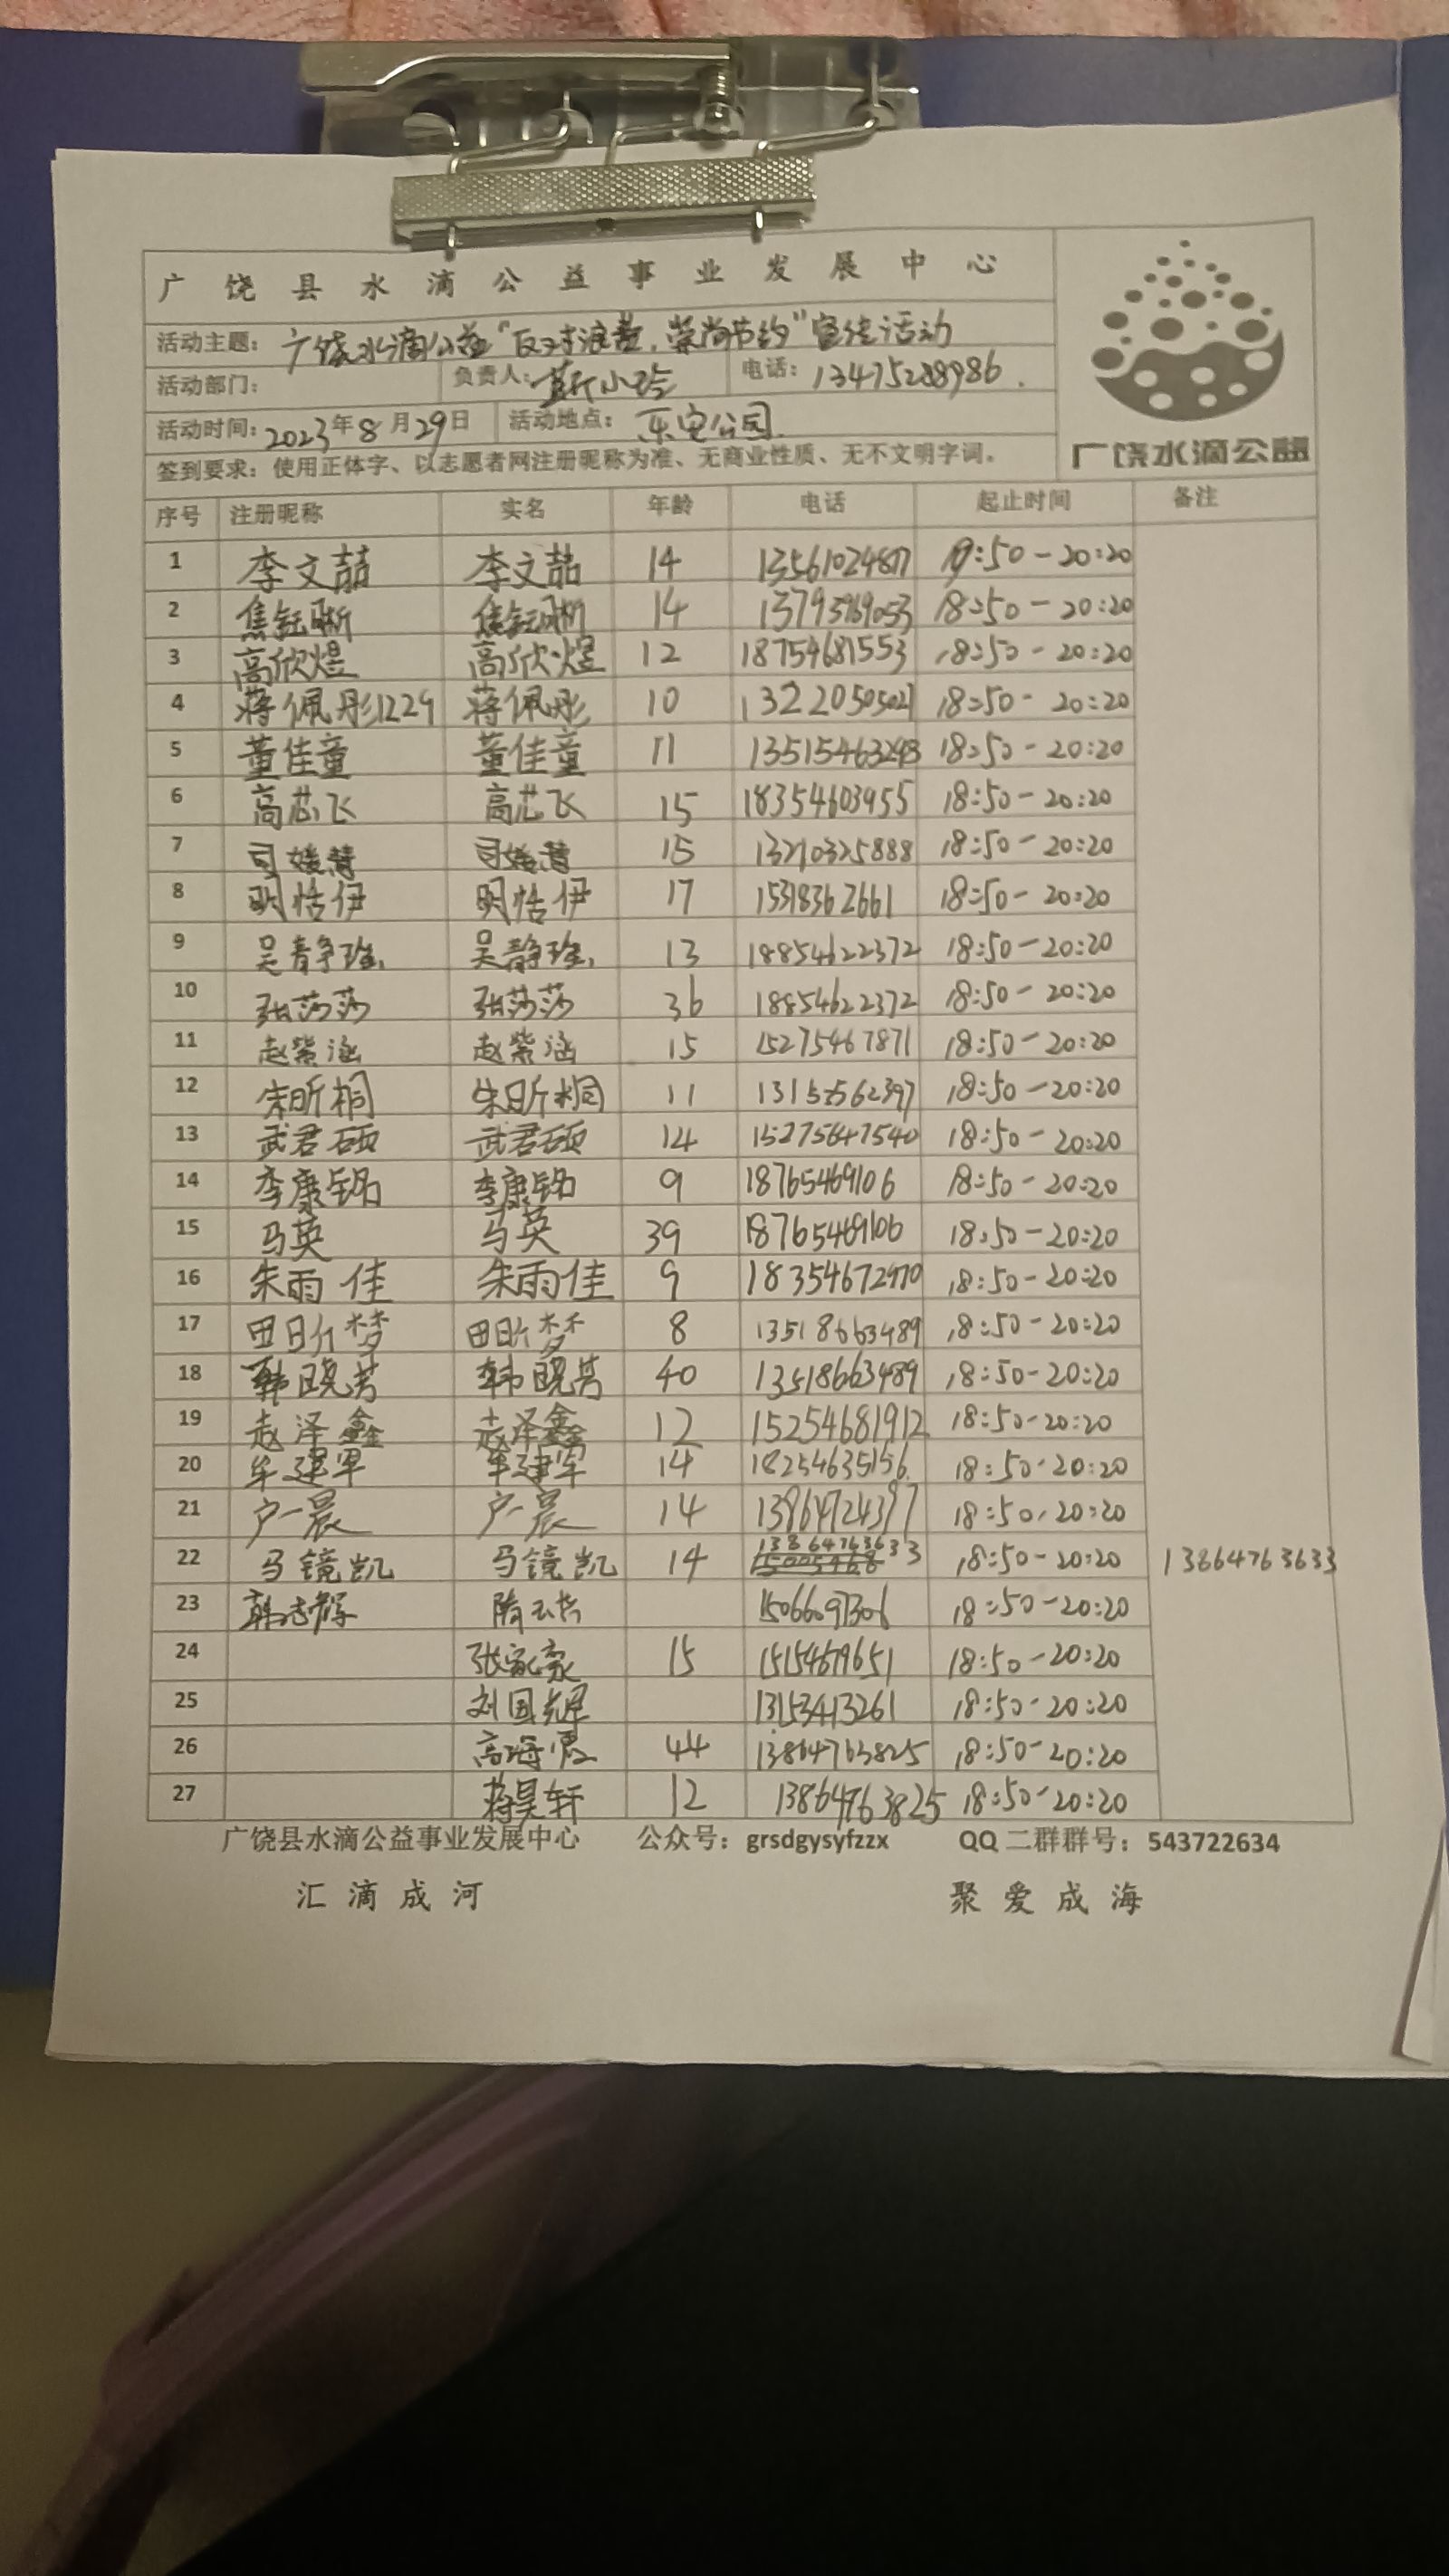 广饶县水滴公益事业发展中心
活动主题：广饶水滴公益“反对浪费，崇尚节约”宣传活动
活动部门： 负责人：靳小玲 电话：13475228986.
活动时间：2023年8月29日 活动地点：乐安公园.
签到要求：使用正体字、以志愿者网注册昵称为准、无商业性质、无不文明字词。
广饶水滴公益
序号 注册昵称 实名 年龄 电话 起止时间 备注
1 李文喆 李文喆 14 13561024877 :50-20:20
2 焦钰晰 焦钰晰 14 13793969053 18:50-20:20
3 高欣煜 高欣煜 12 18754681553 18:50-20:20
4 蒋佩彤1229 蒋佩彤 10 13220505021 18:50-20:20
5 董佳童 董佳童 11 18:50-20:20
6 高芯飞 高芯飞 15 18354603955 18:50-20:20
7 司媛慧 司媛慧 15 13210325888 18:50-20:20
8 明恬伊 明恬伊 17 15318362661 18:50-20:20
9 吴静瑶 吴静瑶 13 18854622372 18:50-20:20
10 张莎莎 张莎莎 36 18854622372 18:50-20:20
11 赵紫涵 赵紫涵 15 15275467871 18:50-20:20
12 朱昕桐 朱昕桐 11 13157562397 18:50-20:20
13 武君硕 武君硕 14 15275647540 18:50-20:20
14 李康铭 李康铭 9 18765469106 18:50-20:20
15 马英 马英 39 18765469106 18:50-20:20
16 朱雨佳 朱雨佳 9 18354672970 18:50-20:20
17 田昕梦 田昕梦 8 13518663489 18:50-20:20
18 韩晓芳 韩晓芳 40 13518663489 18:50-20:20
19 赵泽鑫 赵泽鑫 12 15254681912 18:50-20:20
20 牟建军 牟建军 14 18254635156 18:50-20:20
21 户一宸 户一宸 14 13964724397 18:50-20:20
22 马镜凯 马镜凯 14 13864763633 18:50-20:20 13864763633
23 韩志辉 15066097306 18:50-20:20
24 张家豪 15 15154679651 18:50-20:20
25 刘国辉 13153413261 18:50-20:20
26 高海霞 44 13864763825 18:50-20:20
27 蒋昊轩 12 13864763825 18:50-20:20
广饶县水滴公益事业发展中心 公众号：grsdgysyfzzx QQ二群群号：543722634
汇滴成河 聚爱成海